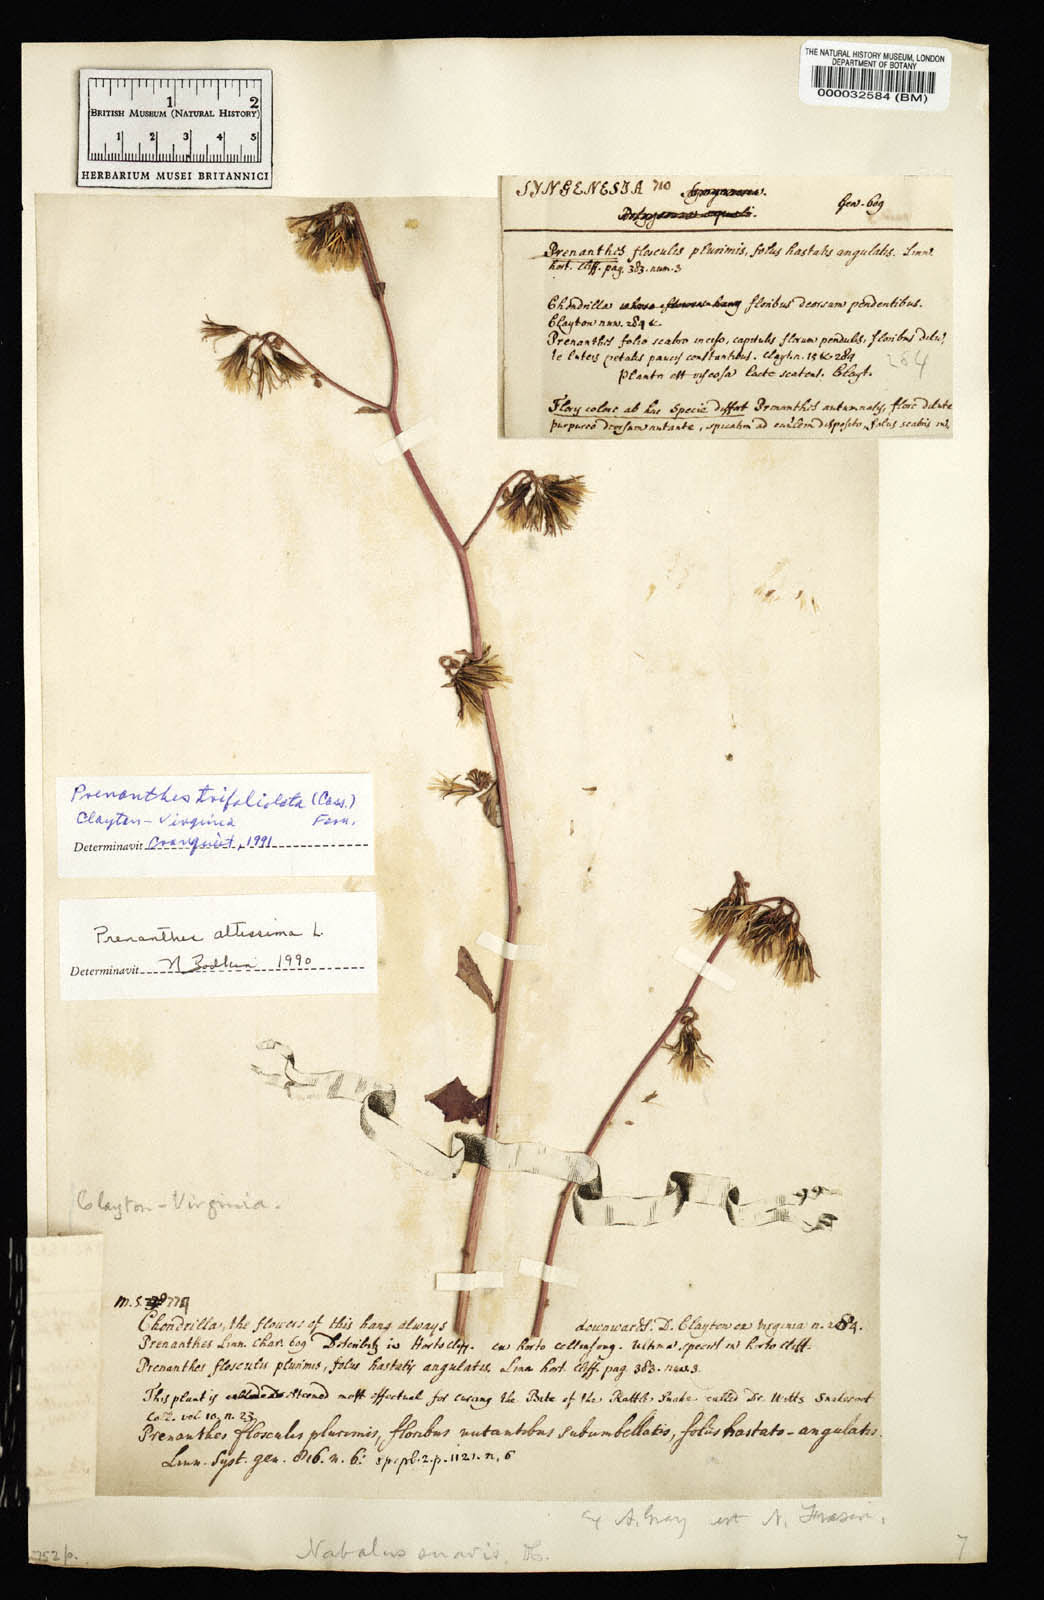 THE NATURAL HISTORY MUSEUM, LONDON
DEPARTMENT OF BOTANY
000032584 (BM)
1 2
BRITISH MUSEUM (NATURAL HISTORY)
1 2 3 4 5
HERBARIUM MUSEI BRITANNICI
SYNGENESIA 710
Gen. 609
Prenanthis flosculis plurimis, foliis hastatis angulatis. Linn.
hort. Cliff. pag. 383. num. 3
Chondrilla whose flowers hang floribus deorsum pendentibus.
Clayton num. 284 &
Prenanthis folio scabro inciso, capitulis florum pendulis, floribus dilu
te luteis petalis paucis constantibus. Clayt. n. 15 & 284
284
Planta est viscosa lacte scatens. Clayt.
Floris colore ab hac Specie differt Prenanthes autumnalis, flore dilute
purpureo deorsum nutante, spicatim ad caulem disposito, foliis scabris in,
Prenanthes trifoliolata (Cass.)
Clayton - Virginia Fern.
Determinavit Cronquist, 1991
Prenanthes altissima L.
Determinavit N Bodkin 1990
Clayton - Virginia.
M.S. 77
Chondrilla, the flowers of this hang always downwards. D. Clayton ex Virginia n. 284.
Prenanthes Linn. Char. 609 Describitur in Horto Cliff. ultima species in horto Cliff.
Prenanthes flosculis plurimis, foliis hastatis angulatis. Linn hort. Cliff. pag. 383. num. 3
This plant is attconed most effectual for curing the Bite of the Rattle Snake called Dr. Witts Snakeroot
Coll. vol. 10, n. 23
Prenanthes flosculis plurimis, floribus nutantibus subumbellatis, foliis hastato-angulatis.
Linn. Syst. gen. 816. n. 6. sp. pl. 2. p. 1121. n. 6
A. Gray est N. Fraseri.
Nabalus
7